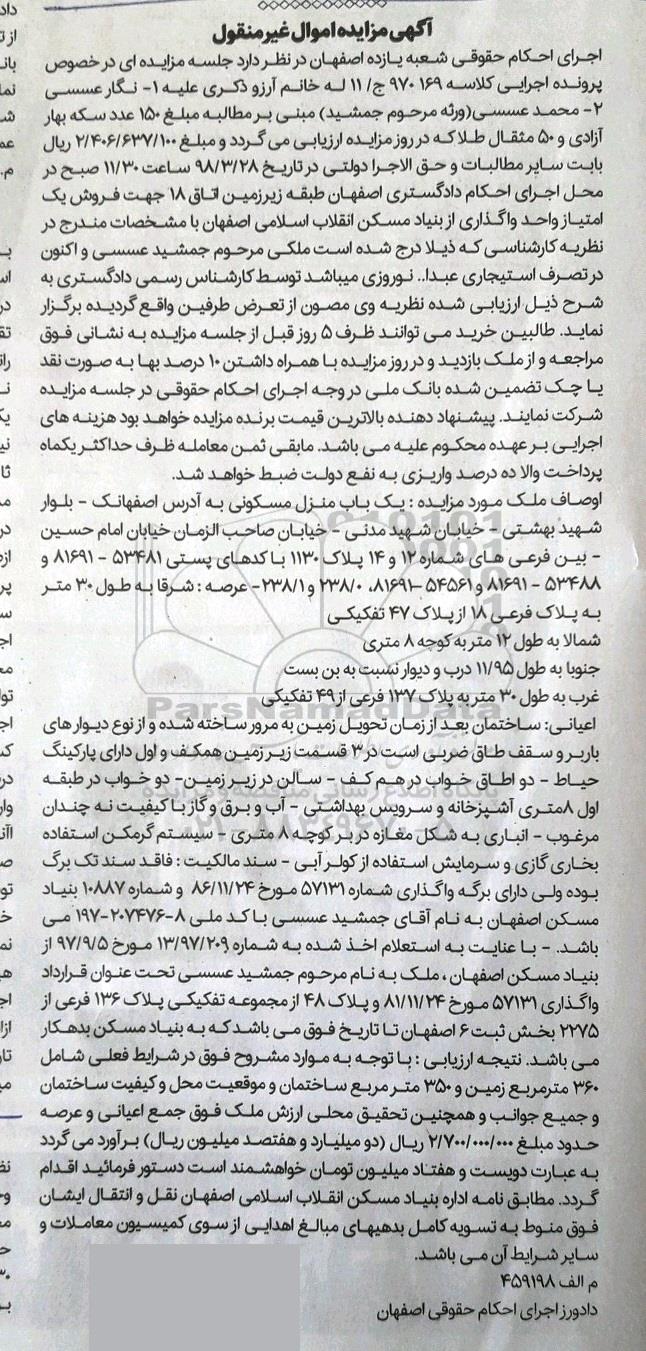 آگهی مزایده اموال غیر منقول
اجرای احکام حقوقی شعبه یازده اصفهان در نظر دارد جلسه مزایده ای در خصوص
پرونده اجرایی کلاسه ۹۷۰۱۶۹ ج/ ۱۱ له خانم آرزو ذکری علیه ۱- نگار عسسی
۲- محمد عسسی(ورثه مرحوم جمشید) مبنی بر مطالبه مبلغ ۱۵۰ عدد سکه بهار
آزادی و ۵۰ مثقال طلا که در روز مزایده ارزیابی می گردد و مبلغ ۲/۴۰۶/۶۳۷/۱۰۰ ریال
بابت سایر مطالبات و حق الاجرا دولتی در تاریخ ۹۸/۳/۲۸ ساعت ۱۱/۳۰ صبح در
محل اجرای احکام دادگستری اصفهان طبقه زیرزمین اتاق ۱۸ جهت فروش یک
امتیاز واحد واگذاری از بنیاد مسکن انقلاب اسلامی اصفهان با مشخصات مندرج در
نظریه کارشناسی که ذیلا درج شده است ملکی مرحوم جمشید عسسی و اکنون
در تصرف استیجاری عبدا.. نوروزی میباشد توسط کارشناس رسمی دادگستری به
شرح ذیل ارزیابی شده نظریه وی مصون از تعرض طرفین واقع گردیده برگزار
نماید. طالبین خرید می توانند ظرف ۵ روز قبل از جلسه مزایده به نشانی فوق
مراجعه و از ملک بازدید و در روز مزایده با همراه داشتن ۱۰ درصد بها به صورت نقد
یا چک تضمین شده بانک ملی در وجه اجرای احکام حقوقی در جلسه مزایده
شرکت نمایند. پیشنهاد دهنده بالاترین قیمت برنده مزایده خواهد بود هزینه های
اجرایی بر عهده محکوم علیه می باشد. مابقی ثمن معامله ظرف حداکثر یکماه
پرداخت والا ده درصد واریزی به نفع دولت ضبط خواهد شد.
اوصاف ملک مورد مزایده : یک باب منزل مسکونی به آدرس اصفهانک - بلوار
شهید بهشتی - خیابان شهید مدنی - خیابان صاحب الزمان خیابان امام حسین
- بین فرعی های شماره ۱۲ و ۱۴ پلاک ۱۱۳۰ با کدهای پستی ۵۳۴۸۱ - ۸۱۶۹۱ و
۵۳۴۸۸ - ۸۱۶۹۱ و ۵۴۵۶۱ -۸۱۶۹۱، ۲۳۸/۰ و ۲۳۸/۱- عرصه : شرقا به طول ۳۰ متر
به پلاک فرعی ۱۸ از پلاک ۴۷ تفکیکی
شمالا به طول ۱۲ متر به کوچه ۸ متری
جنوبا به طول ۱۱/۹۵ درب و دیوار نسبت به بن بست
غرب به طول ۳۰ متر به پلاک ۱۳۷ فرعی از ۴۹ تفکیکی
ParsNamadData
اعیانی: ساختمان بعد از زمان تحویل زمین به مرور ساخته شده و از نوع دیوار های
باربر و سقف طاق ضربی است در ۳ قسمت زیر زمین همکف و اول دارای پارکینگ
حیاط - دو اطاق خواب در هم کف - سالن در زیر زمین- دو خواب در طبقه
اول ۸متری آشپزخانه و سرویس بهداشتی - آب و برق و گاز با کیفیت نه چندان
مرغوب - انباری به شکل مغازه در بر کوچه ۸ متری - سیستم گرمکن استفاده
بخاری گازی و سرمایش استفاده از کولر آبی - سند مالکیت : فاقد سند تک برگ
بوده ولی دارای برگه واگذاری شماره ۵۷۱۳۱ مورخ ۸۶/۱۱/۲۴ و شماره ۱۰۸۸۷ بنیاد
مسکن اصفهان به نام آقای جمشید عسسی با کد ملی ۸-۲۰۷۴۷۶-۱۹۷ می
باشد. - با عنایت به استعلام اخذ شده به شماره ۱۳/۹۷/۲۰۹ مورخ ۹۷/۹/۵ از
بنیاد مسکن اصفهان ، ملک به نام مرحوم جمشید عسسی تحت عنوان قرارداد
واگذاری ۵۷۱۳۱ مورخ ۸۱/۱۱/۲۴ و پلاک ۴۸ از مجموعه تفکیکی پلاک ۱۳۶ فرعی از
۲۲۷۵ بخش ثبت ۶ اصفهان تا تاریخ فوق می باشد که به بنیاد مسکن بدهکار
می باشد. نتیجه ارزیابی : با توجه به موارد مشروح فوق در شرایط فعلی شامل
۳۶۰ مترمربع زمین و ۳۵۰ متر مربع ساختمان و موقعیت محل و کیفیت ساختمان
و جمیع جوانب و همچنین تحقیق محلی ارزش ملک فوق جمع اعیانی و عرصه
حدود مبلغ ۲/۷۰۰/۰۰۰/۰۰۰ ریال (دو میلیارد و هفتصد میلیون ریال) برآورد می گردد
به عبارت دویست و هفتاد میلیون تومان خواهشمند است دستور فرمائید اقدام
گردد. مطابق نامه اداره بنیاد مسکن انقلاب اسلامی اصفهان نقل و انتقال ایشان
فوق منوط به تسویه کامل بدهیهای مبالغ اهدایی از سوی کمیسیون معاملات و
سایر شرایط آن می باشد.
م الف ۴۵۹۱۹۸
دادورز اجرای احکام حقوقی اصفهان